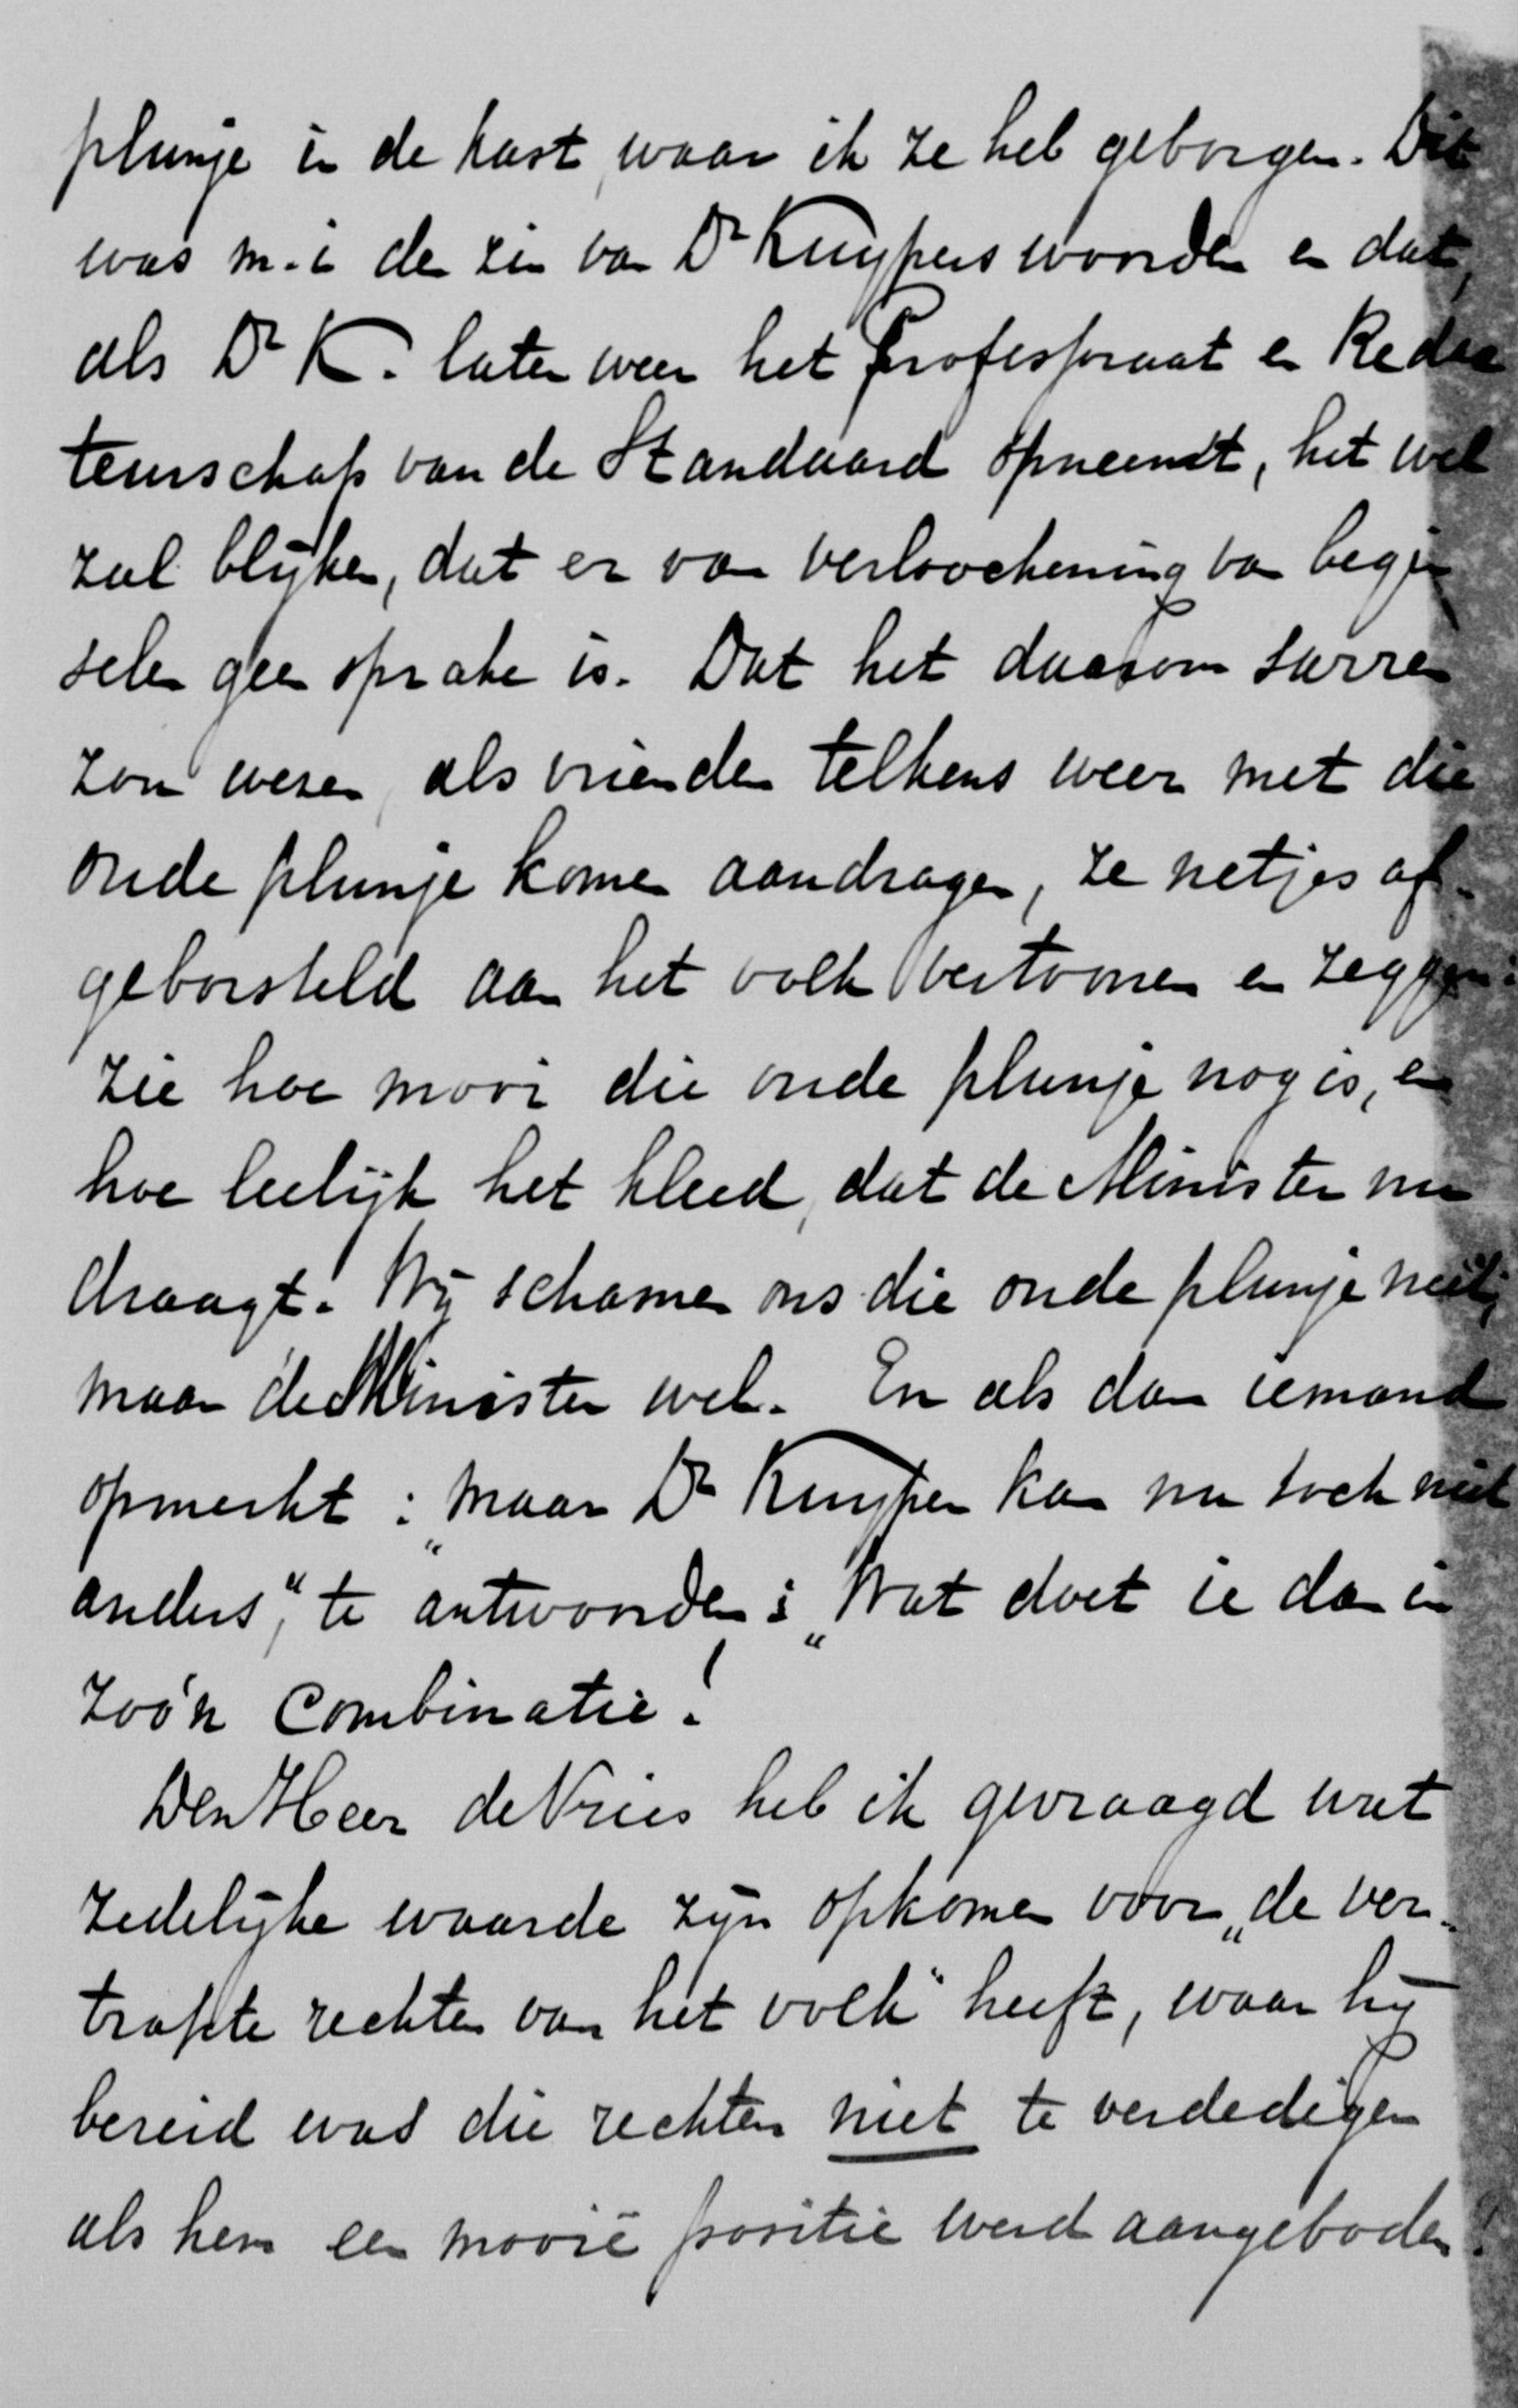 plunje in de kast, waar ik ze heb geborgen. Dit
was m.i. de zin van Dr Kuypers woorden en dat,
als Dr K. later weer het Professoraat en Redac
teurschap van de Standaard opneemt, het wel
zal blijken, dat er van verloochening van begin
selen geen sprake is. Dat het daarom sarren
zou wezen, als vrienden telkens weer met die
oude plunje komen aandragen, ze netjes af-
geborsteld aan het volk vertoonen en zeggen:
zie hoe mooi die oude plunje nog is, en
hoe leelijk het kleed, dat de Minister nu
draagt. Wij schamen ons die oude plunje niet,
maar de Minister wel. En als dan iemand
opmerkt: „maar Dr Kuyper kan nu toch niet
anders", te antwoorden: „Wat doet ie dan in
zoo'n combinatie!
Den Heer de Vries heb ik gevraagd wat
zedelijke waarde zijn opkomen voor „de ver-
trapte rechten van het volk" heeft, waar hij
bereid was die rechten niet te verdedigen
als hem een mooie positie werd aangeboden!